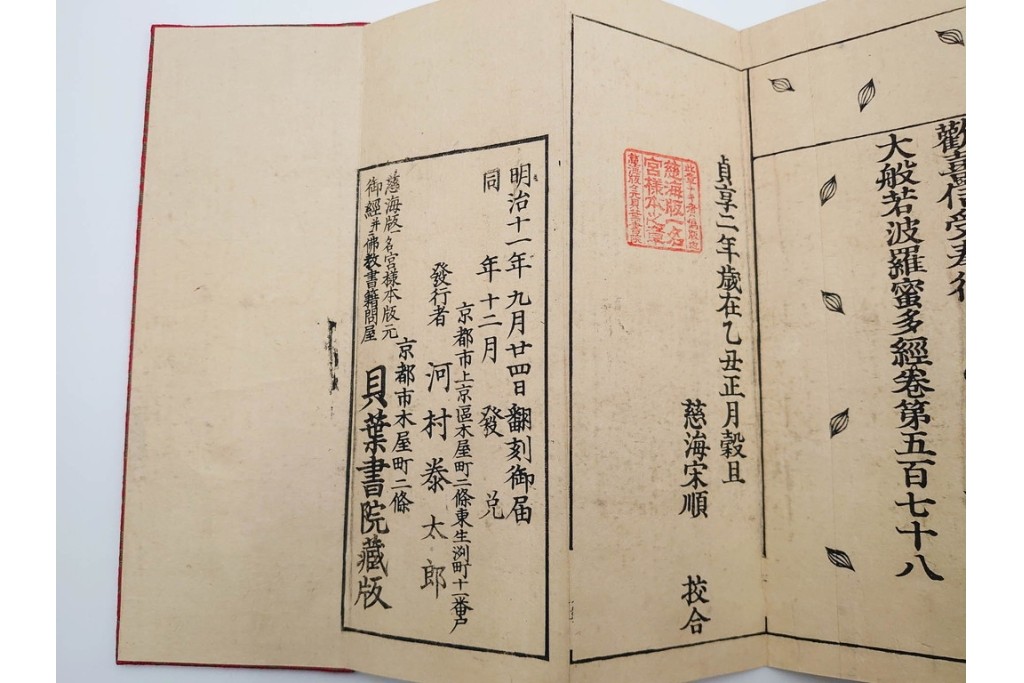 歡喜信受奉行
大般若波羅蜜多經卷第五百七十八
貞享二年歳在乙丑正月穀旦
慈海宋順 挍合
慈海版一名
宮樣本之章
明治十一年九月廿四日翻刻御届
同 年十二月 發兌
京都市上京區木屋町二條東生洲町十一番戸
發行者 河村泰太郎
京都市木屋町二條
慈海版一名宮樣本版元
御經并ニ佛教書籍問屋
貝葉書院藏版